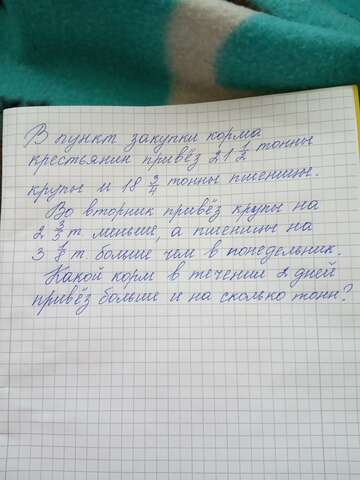 В пункт закупки корма
крестьянин привёз 21 1/2 тонны
крупы и 18 3/4 тонны пшеницы.
Во вторник привёз крупы на
2 3/5 т меньше, а пшеницы на
3 1/8 т. больше чем в понедельник.
Какой корм в течении 2 дней
привёз больше и на сколько тонн?